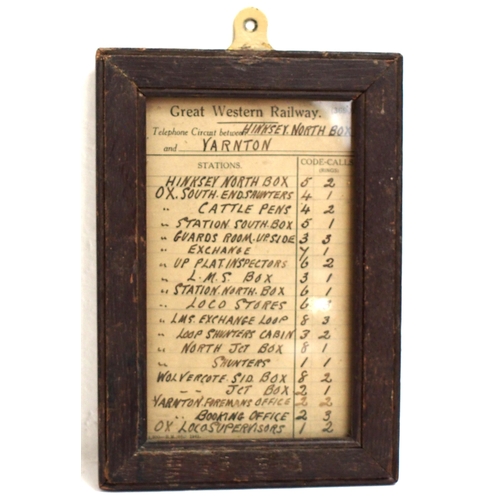 Great Western Railway.
Telephone Circuit between HINKSEY. NORTH BOX
and VARNTON
STATIONS. CODE-CALLS
(RINGS)
HINKSEY NORTH BOX 5 2
OX. SOUTH. END SHUNTERS 4 1
" CATTLE PENS 4 2
" STATION SOUTH. BOX 5 1
" GUARDS ROOM. UPSIDE 3 3
" EXCHANGE 7 1
" UP PLAT. INSPECTORS 6 2
" L.M.S. BOX 3 1
" STATION. NORTH. BOX 6 1
" LOCO STORES 6
" LMS. EXCHANGE LOOP 8 3
" LOOP SHUNTERS CABIN 3 2
" NORTH JCT BOX 8 1
" SHUNTERS 1 1
WOLVERCOTE SID. BOX 8 2
" " JCT BOX 2 1
YARNTON. FOREMANS OFFICE 2 2
" BOOKING OFFICE 2 3
OX LOCO SUPERVISORS 1 2